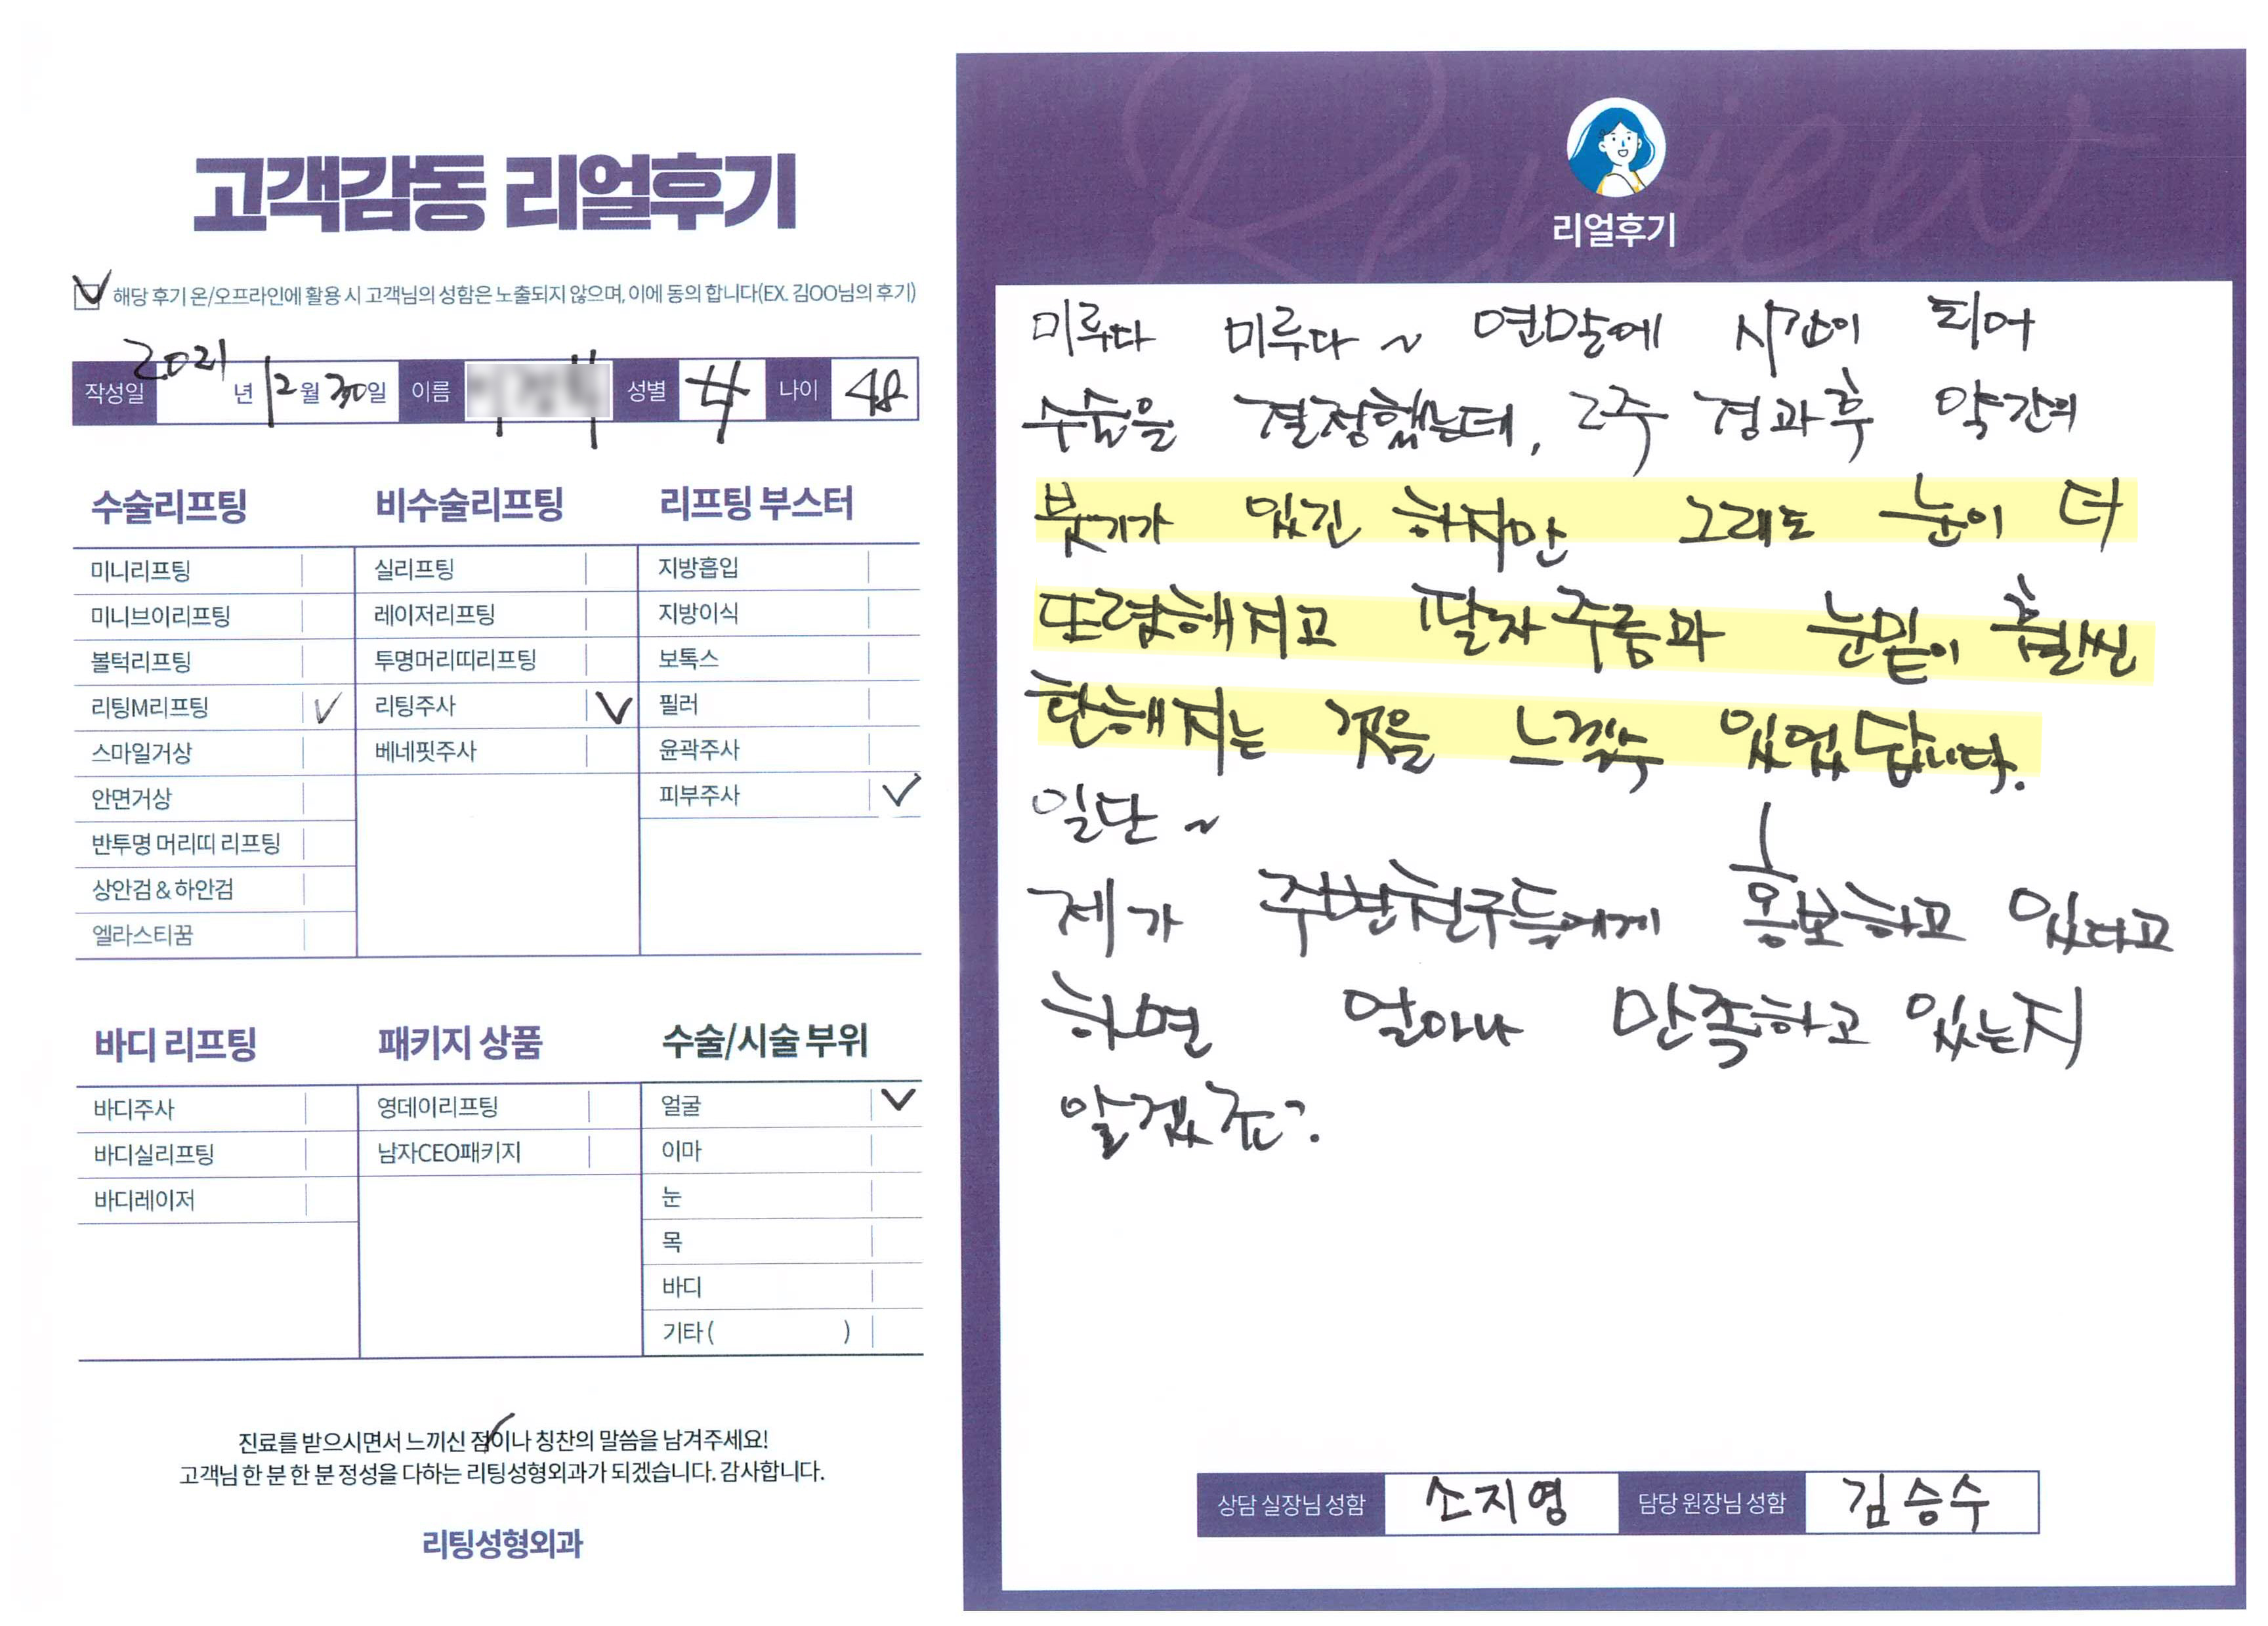 고객감동 리얼후기
해당 후기 온/오프라인에 활용 시 고객님의 성함은 노출되지 않으며, 이에 동의 합니다(EX. 김OO님의 후기)
작성일 2021 년 12 월 30 일 이름 성별 여 나이 48
수술리프팅 비수술리프팅 리프팅 부스터
미니리프팅 실리프팅 지방흡입
미니브이리프팅 레이저리프팅 지방이식
볼턱리프팅 투명머리띠리프팅 보톡스
리팅M리프팅 V 리팅주사 V 필러
스마일거상 베네핏주사 윤곽주사
안면거상 피부주사 V
반투명 머리띠 리프팅
상안검 & 하안검
엘라스티꿈
바디 리프팅 패키지 상품 수술/시술 부위
바디주사 영데이리프팅 얼굴 V
바디실리프팅 남자CEO패키지 이마
바디레이저 눈
목
바디
기타 ( )
진료를 받으시면서 느끼신 점이나 칭찬의 말씀을 남겨주세요!
고객님 한 분 한 분 정성을 다하는 리팅성형외과가 되겠습니다. 감사합니다.
리팅성형외과
Review
리얼후기
미루다 미루다~ 연말에 시간이 되어
수술을 결정했는데, 2주 경과후 약간의
붓기가 있긴 하지만 그래도 눈이 더
또렷해지고 팔자주름과 눈밑이 훨씬
환해지는 것을 느낄수 있었답니다.
일단~
제가 주변친구들에게 홍보하고 있다고
하면 얼마나 만족하고 있는지
알겠죠?
상담 실장님 성함 소지영 담당 원장님 성함 김승수